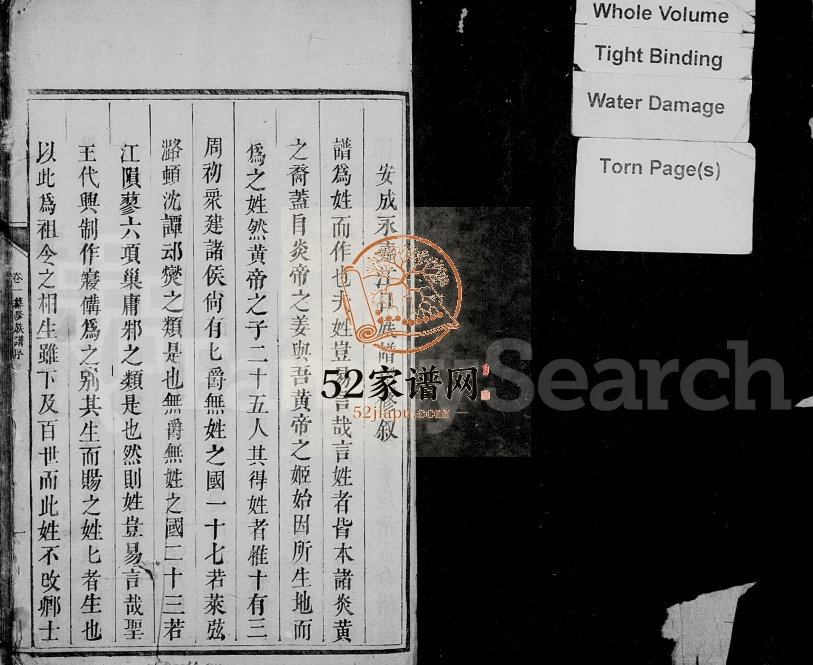 Whole Volume
Tight Binding
Water Damage
Torn Page(s)
安成永嘉江氏族譜 叙
譜爲姓而作也夫姓豈易言哉言姓者皆本諸炎黄
之裔蓋自炎帝之姜與吾黄帝之姬始因所生地而
爲之姓然黄帝之子二十五人其得姓者惟十有三
周初衆建諸侯尙有七爵無姓之國一十七若萊弦
潞頓沈譚 之類是也無爵無姓之國二十三若
江隕蓼六項巢庸邪之類是也然則姓豈易言哉聖
王代興制作寖備爲之别其生而賜之姓匕者生也
以此爲祖令之相生雖下及百世而此姓不改鄉士
卷一 族譜序
Search
52家谱网
52jiapu.com